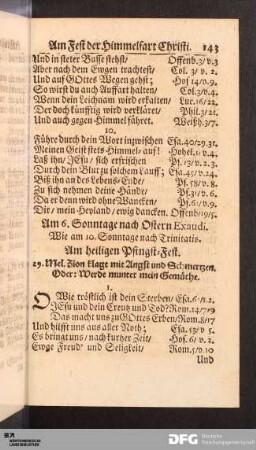 Am Fest der Himmelfart Christi. 143
Und in steter Busse stehst/ Offenb. 3/v.3
Aber nach dem Ewgen trachtest/ Col. 3/ v. 2.
Und auf GOttes Wegen gehst; Hos 14/v.9.
So wirst du auch Auffart halten/ Col. 3/v.4.
Wenn dein Leichnam wird erkalten/ Luc. 16/22.
Der doch künfftig wird verklärt/ Phil. 3/21.
Und auch gegen Himmel fährt. Weißh. 3/7.
10.
Führe durch dein Wort inzwischen Esa. 40/29.31.
Meinen Geist stets Himmel-auf! Hohel. 1/ v.4.
Laß ihn/ JEsu/ sich erfrischen Ps. 13/v.2.3.
Durch dein Blut zu solchem Lauff; Esa. 45/ v.24.
Biß ihn an des Lebens Ende/ Ps. 58/ v.8.
Zu sich nehmen deine Hände/ Ps. 31/v.6.
Da er denn wird ohne Wancken/ Ps. 61/ v.9.
Dir/ mein Heyland/ ewig dancken. Offenb/19/5.
Am 6. Sonntage nach Ostern Exaudi.
Wie am 10. Sonntage nach Trinitatis.
Am heiligen Pfingst-Fest.
29. Mel. Zion klagt mit Angst und Schmertzen.
Oder: Werde munter mein Gemüthe.
1.
O Wie tröstlich ist dein Sterben/ Esa. 6/n.2.
JEsu und dein Creutz und Tod? Rom. 14/7.9
Das macht uns zu GOttes Erben/ Rom. 8/17
Und hilfft uns aus aller Noth; Esa. 53/ v 5.
Es bringt uns/ nach kurtzer Zeit/ Hos. 6/ v. 2.
Ewge Freud' und Seligkeit/ Rom. 5/v.10
Und
DFG Deutsche
Forschungsgemeinschaft